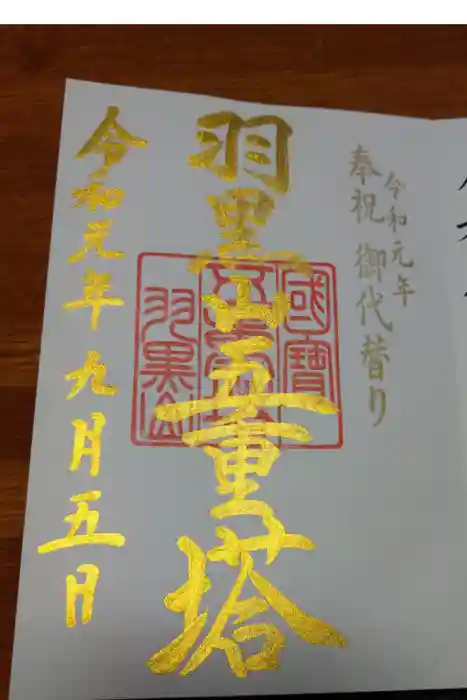 奉祝 御代替り
令和元年
羽黒山五重塔
國寶
五重塔
羽黒山
令和元年九月五日